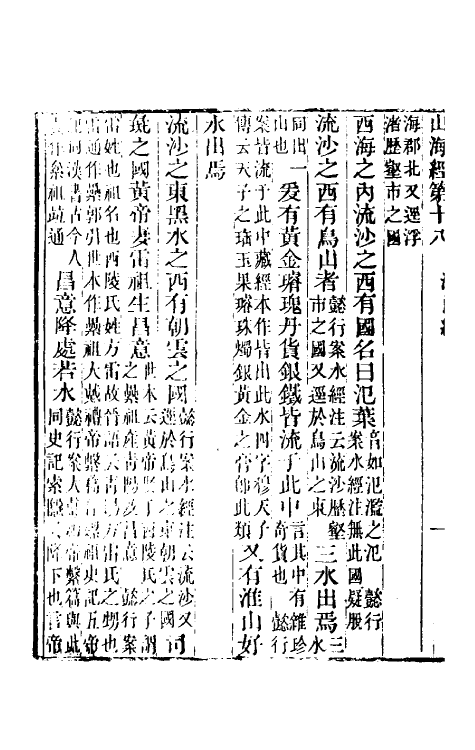 山海經第十八
海郡北又逕浮
渚歷壑市之國
西海之內流沙之西有國名曰氾葉
音如氾濫之氾 懿行
案水經注無此國疑脫
流沙之西有鳥山者
懿行案水經注云流沙歷壑
市之國又逕於鳥山之東
三水出焉
三
水
同出一
山也
爰有黃金璿瑰丹貨銀鐵皆流于此中
言其中有雜珍
奇貨也 懿行
案皆流于此中藏經本作皆出此水四字穆天子
傳云天子之珤玉果璿珠燭銀黃金之膏即此類
又有淮山好
水出焉
流沙之東黑水之西有朝雲之國
懿行案水經注云流沙又
逕於鳥山之東朝雲之國
司
彘之國黃帝妻雷祖生昌意
世本云黃帝娶于西陵氏之子謂
之纍祖產青陽及昌意 懿行案
雷姓也祖名也西陵氏姓方雷故晉語云青陽方雷氏之甥也
雷通作纍郭引世本作纍祖大戴禮帝繫篇作嫘祖史記五帝
紀同漢書古今人
表作絫祖並通
昌意降處若水
懿行案大戴禮帝繫篇與此
同史記索隱云降下也言帝